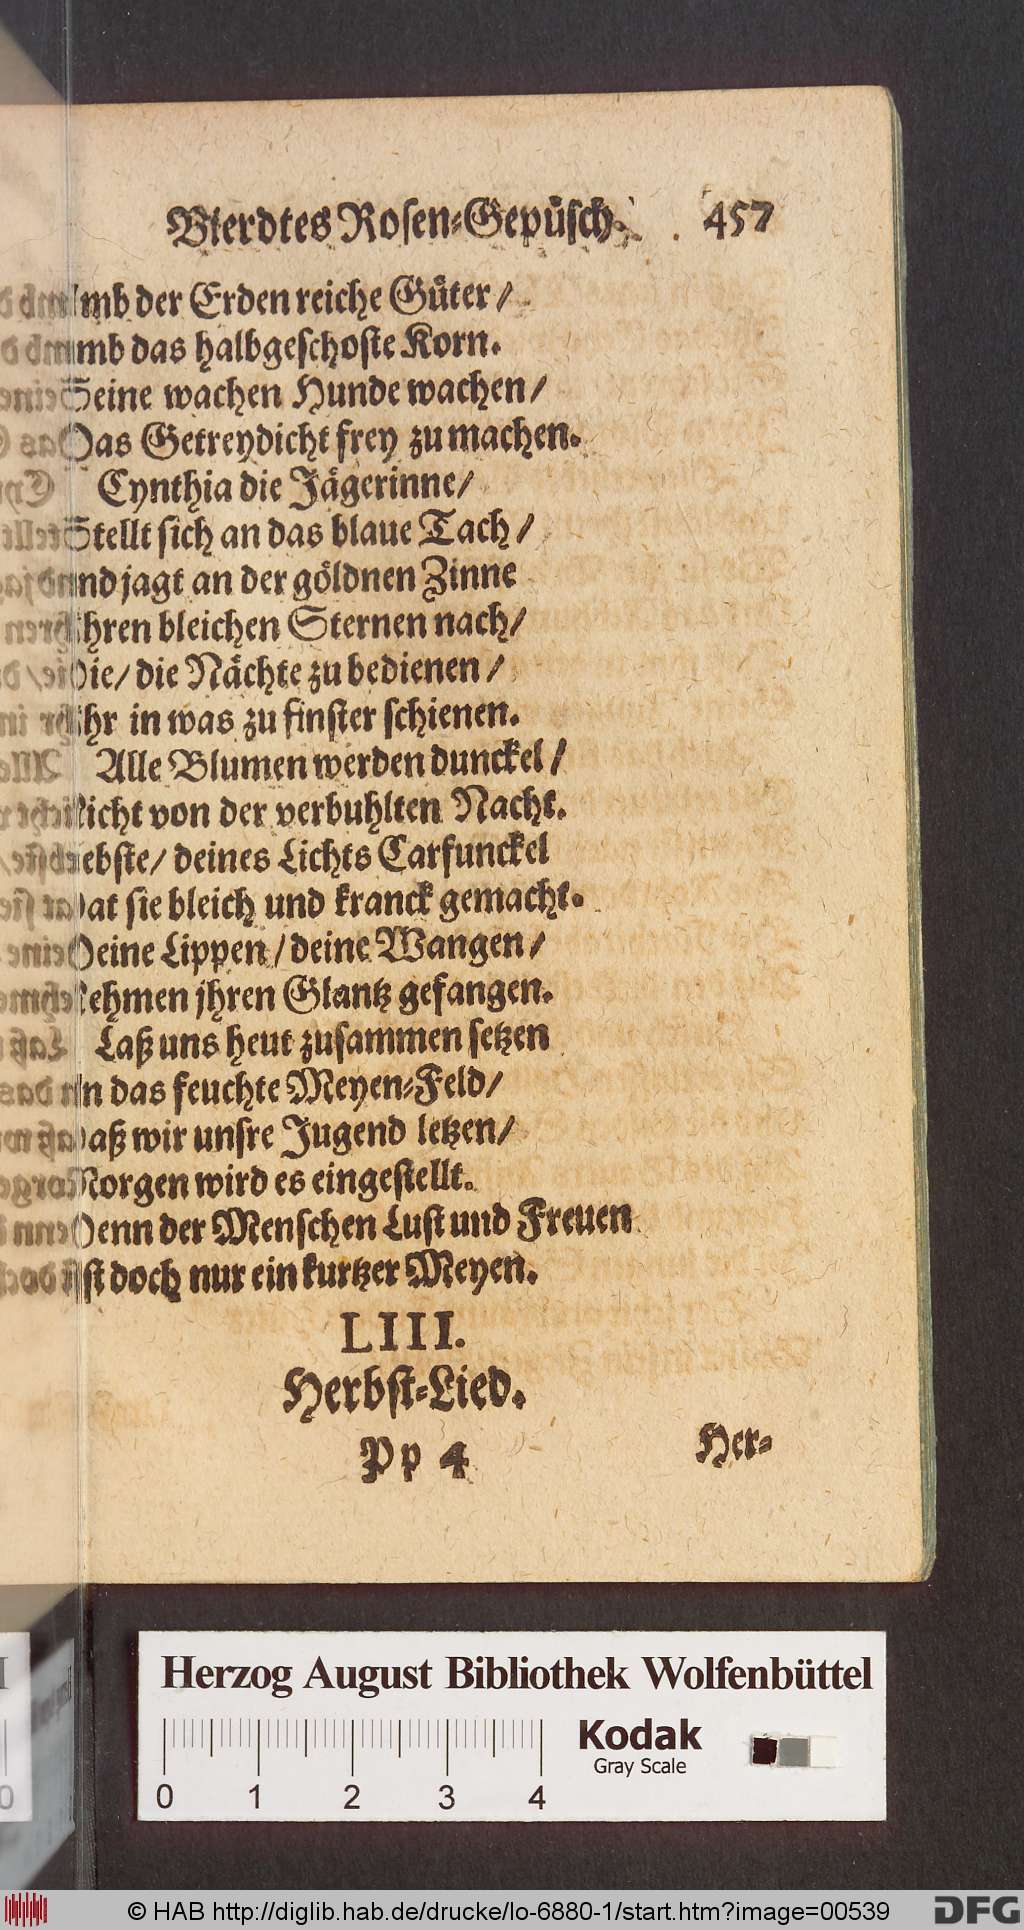 Vierdtes Rosen-Gepüsch. 457
Umb der Erden reiche Güter /
umb das halbgeschoste Korn.
Seine wachen Hunde wachen /
Das Getreydicht frey zu machen.
Cynthia die Jägerinne /
Stellt sich an das blaue Tach /
und jagt an der göldnen Zinne
Jhren bleichen Sternen nach /
Die / die Nächte zu bedienen /
Jhr in was zu finster schienen.
Alle Blumen werden dunckel /
Nicht von der verbuhlten Nacht.
Liebste / deines Lichts Carfunckel
Hat sie bleich und kranck gemacht.
Deine Lippen / deine Wangen /
Nehmen jhren Glantz gefangen.
Laß uns heut zusammen setzen
Jn das feuchte Meyen-Feld /
Daß wir unsre Jugend letzen /
Morgen wird es eingestellt.
Denn der Menschen Lust und Freuen
Jst doch nur ein kurtzer Meyen.
LIII.
Herbst-Lied.
Pp 4 Her-
Herzog August Bibliothek Wolfenbüttel
Kodak
Gray Scale
0 1 2 3 4
© HAB http://diglib.hab.de/drucke/lo-6880-1/start.htm?image=00539
DFG